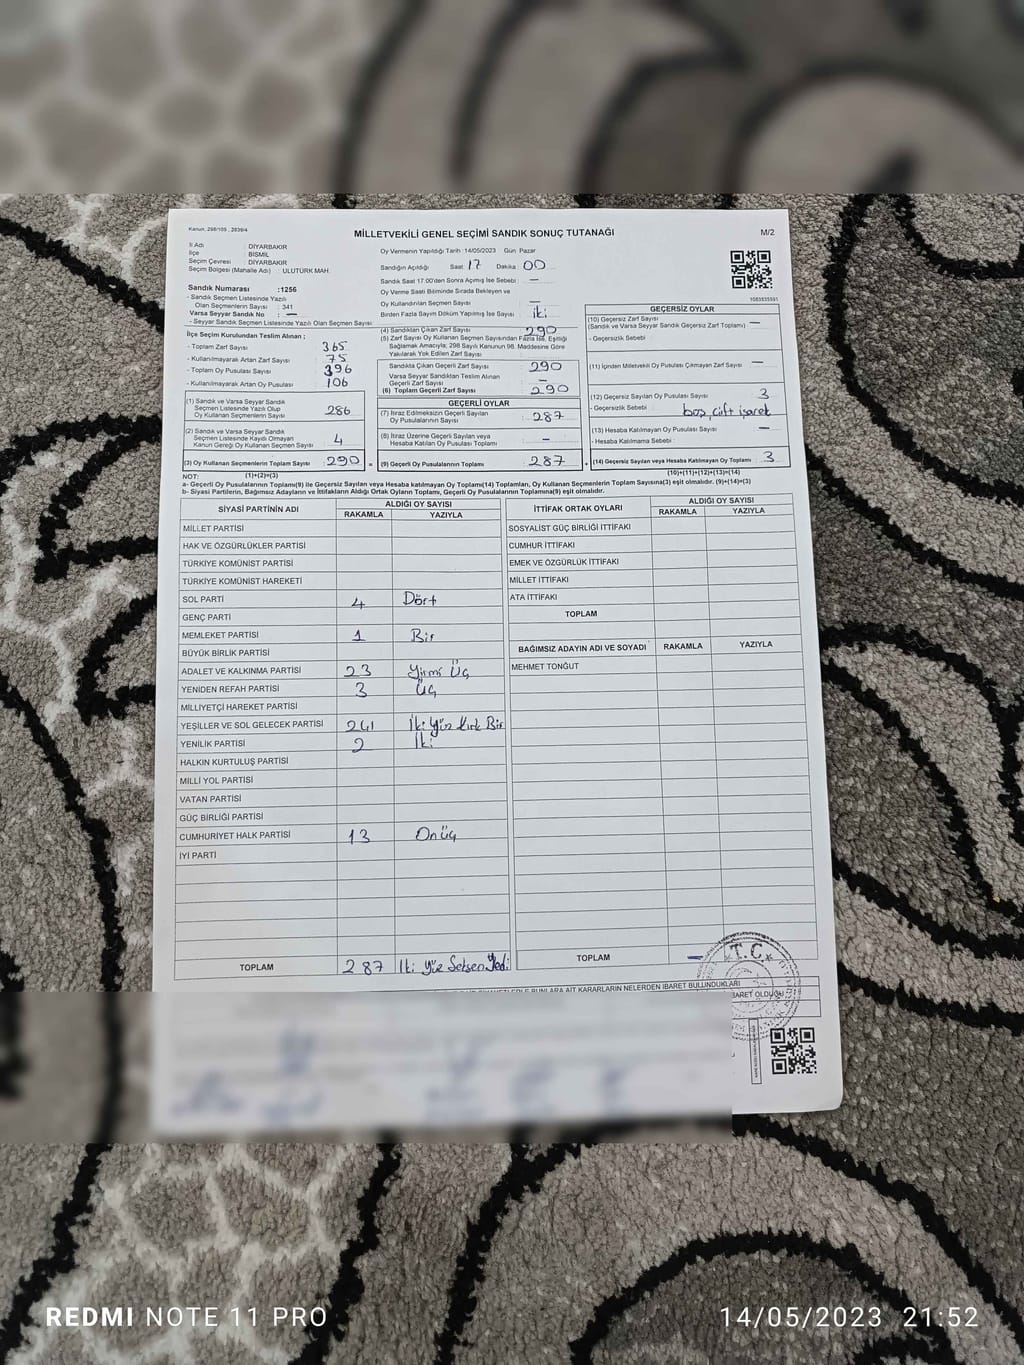 Kanun, 298/105 , 2839/4
MİLLETVEKİLİ GENEL SEÇİMİ SANDIK SONUÇ TUTANAĞI
M/2
İl Adı : DİYARBAKIR
İlçe : BİSMİL
Seçim Çevresi : DİYARBAKIR
Seçim Bölgesi (Mahalle Adı) : ULUTÜRK MAH.
Sandık Numarası :1256
- Sandık Seçmen Listesinde Yazılı
Olan Seçmenlerin Sayısı : 341
Varsa Seyyar Sandık No : —
- Seyyar Sandık Seçmen Listesinde Yazılı Olan Seçmen Sayısı:
Oy Vermenin Yapıldığı Tarih :14/05/2023 Gün Pazar
Sandığın Açıldığı Saat : 17 Dakika : 00
Sandık Saat 17:00'den Sonra Açılmış İse Sebebi : —
Oy Verme Saati Bitiminde Sırada Bekleyen ve
Oy Kullandırılan Seçmen Sayısı : —
Birden Fazla Sayım Döküm Yapılmış İse Sayısı : iki
1083835591
İlçe Seçim Kurulundan Teslim Alınan ;
- Toplam Zarf Sayısı : 365
- Kullanılmayarak Artan Zarf Sayısı : 75
- Toplam Oy Pusulası Sayısı : 396
- Kullanılmayarak Artan Oy Pusulası : 106
(1) Sandık ve Varsa Seyyar Sandık
Seçmen Listesinde Yazılı Olup
Oy Kullanan Seçmenlerin Sayısı : 286
(2) Sandık ve Varsa Seyyar Sandık
Seçmen Listesinde Kayıtlı Olmayan
Kanun Gereği Oy Kullanan Seçmen Sayısı : 4
(3) Oy Kullanan Seçmenlerin Toplam Sayısı : 290
(1)+(2)=(3)
(4) Sandıktan Çıkan Zarf Sayısı : 290
(5) Zarf Sayısı Oy Kullanan Seçmen Sayısından Fazla İse, Eşitliği
Sağlamak Amacıyla; 298 Sayılı Kanunun 98. Maddesine Göre
Yakılarak Yok Edilen Zarf Sayısı :
Sandıkta Çıkan Geçerli Zarf Sayısı : 290
Varsa Seyyar Sandıktan Teslim Alınan
Geçerli Zarf Sayısı : —
(6) Toplam Geçerli Zarf Sayısı : 290
GEÇERLİ OYLAR
(7) İtiraz Edilmeksizin Geçerli Sayılan
Oy Pusulası Sayısı : 287
(8) İtiraz Üzerine Geçerli Sayılan veya
Hesaba Katılan Oy Pusulası Toplamı : —
= (9) Geçerli Oy Pusulalarının Toplamı : 287
GEÇERSİZ OYLAR
(10) Geçersiz Zarf Sayısı : —
(Sandık ve Varsa Seyyar Sandık Geçersiz Zarf Toplamı)
- Geçersizlik Sebebi :
(11) İçinden Milletvekili Oy Pusulası Çıkmayan Zarf Sayısı : —
(12) Geçersiz Sayılan Oy Pusulası Sayısı : 3
- Geçersizlik Sebebi : boş, çift işaret
(13) Hesaba Katılmayan Oy Pusulası Sayısı : —
- Hesaba Katılmama Sebebi :
+ (14) Geçersiz Sayılan veya Hesaba Katılmayan Oy Toplamı : 3
(10)+(11)+(12)+(13)=(14)
NOT:
a- Geçerli Oy Pusulalarının Toplamı(9) ile Geçersiz Sayılan veya Hesaba katılmayan Oy Toplamı(14) Toplamları, Oy Kullanan Seçmenlerin Toplam Sayısına(3) eşit olmalıdır. (9)+(14)=(3)
b- Siyasi Partilerin, Bağımsız Adayların ve İttifakların Aldığı Ortak Oyların Toplamı, Geçerli Oy Pusulalarının Toplamına(9) eşit olmalıdır.
SİYASİ PARTİNİN ADI ALDIĞI OY SAYISI
RAKAMLA YAZIYLA
MİLLET PARTİSİ
HAK VE ÖZGÜRLÜKLER PARTİSİ
TÜRKİYE KOMÜNİST PARTİSİ
TÜRKİYE KOMÜNİST HAREKETİ
SOL PARTİ 4 Dört
GENÇ PARTİ
MEMLEKET PARTİSİ 1 Bir
BÜYÜK BİRLİK PARTİSİ
ADALET VE KALKINMA PARTİSİ 23 Yirmi Üç
YENİDEN REFAH PARTİSİ 3 Üç
MİLLİYETÇİ HAREKET PARTİSİ
YEŞİLLER VE SOL GELECEK PARTİSİ 241 İki Yüz Kırk Bir
YENİLİK PARTİSİ 2 İki
HALKIN KURTULUŞ PARTİSİ
MİLLİ YOL PARTİSİ
VATAN PARTİSİ
GÜÇ BİRLİĞİ PARTİSİ
CUMHURİYET HALK PARTİSİ 13 Onüç
İYİ PARTİ
TOPLAM 287 İki Yüz Seksen Yedi
İTTİFAK ORTAK OYLARI ALDIĞI OY SAYISI
RAKAMLA YAZIYLA
SOSYALİST GÜÇ BİRLİĞİ İTTİFAKI
CUMHUR İTTİFAKI
EMEK VE ÖZGÜRLÜK İTTİFAKI
MİLLET İTTİFAKI
ATA İTTİFAKI
TOPLAM
BAĞIMSIZ ADAYIN ADI VE SOYADI RAKAMLA YAZIYLA
MEHMET TONĞUT
TOPLAM —
T.C.
BUNLARA AİT KARARLARIN NELERDEN İBARET BULUNDUKLARI
İBARET OLDUĞU
REDMI NOTE 11 PRO
14/05/2023 21:52